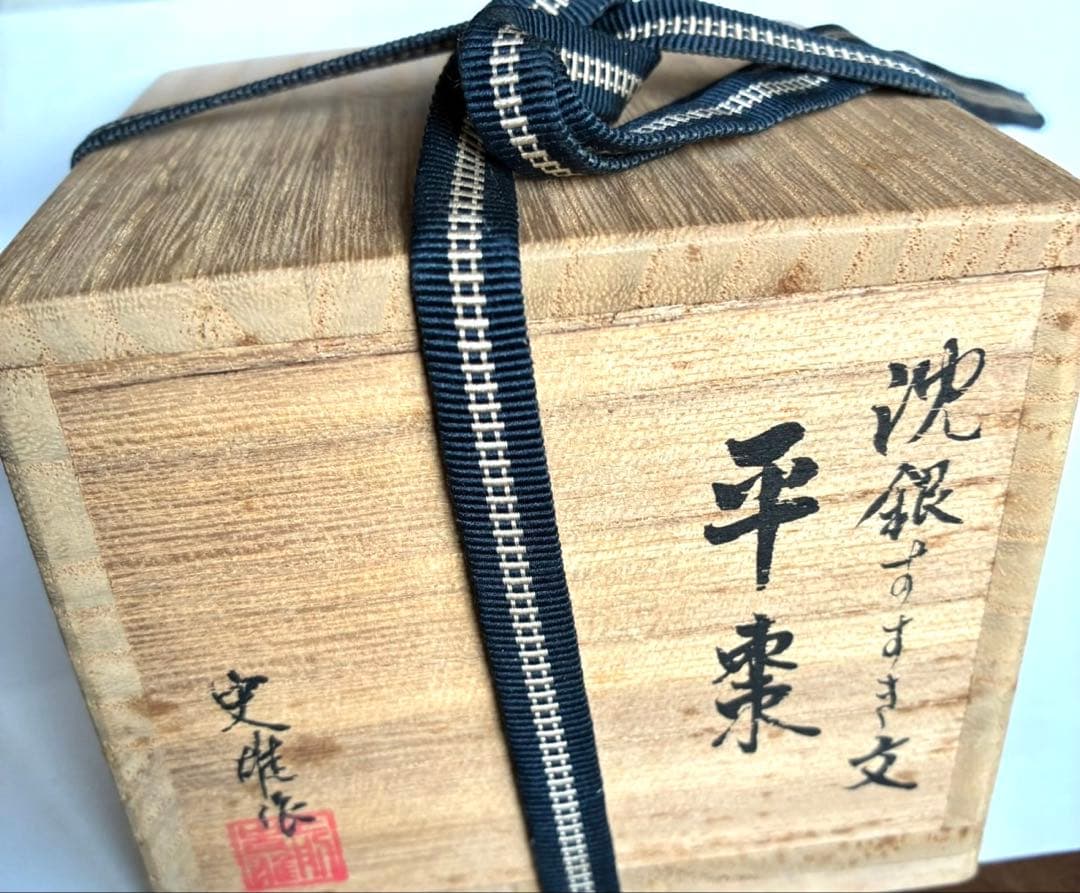 沈銀すすき文
平棗
史雄作